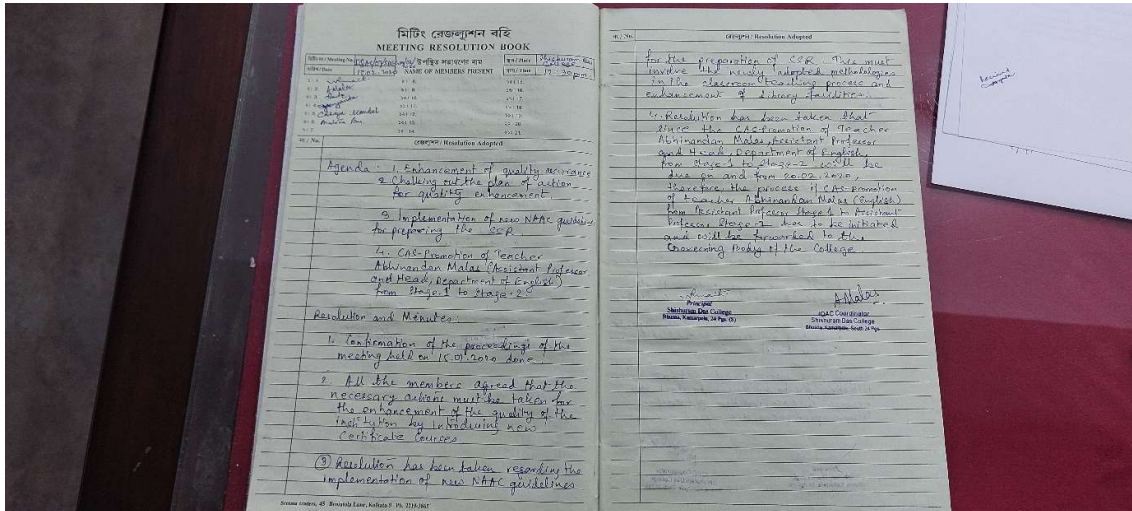 মিটিং রেজল্যুশন বহি
MEETING RESOLUTION BOOK
উপস্থিত সভ্যগণের নাম
NAME OF MEMBERS PRESENT
12:30 pm
নং / No.
রেজল্যুশন / Resolution Adopted
Agenda : 1. Enhancement of quality assurance
2. Chalking out the plan of action
for quality enhancement.
3. Implementation of new NAAC guidelines
for preparing the SSR.
4. CAS-Promotion of Teacher
Abhinandan Malas (Assistant Professor
and Head, Department of English)
from Stage-1 to Stage-2
Resolution and Minutes:
1. Confirmation of the proceedings of the
meeting held on 15.01.2020 done
2. All the members agreed that the
necessary actions must be taken for
the enhancement of the quality of the
institution by introducing new
Certificate Courses
③ Resolution has been taken regarding the
implementation of new NAAC guidelines
নং / No.
রেজল্যুশন / Resolution Adopted
for the preparation of SSR. This must
involve the newly adopted methodologies
in the classroom teaching process and
enhancement of library facilities.
4. Resolution has been taken that
since the CAS-Promotion of Teacher
Abhinandan Malas, Assistant Professor
and Head, Department of English,
from Stage-1 to Stage-2 will be
due on and from 20.02.2020,
therefore the process of CAS-promotion
of teacher Abhinandan Malas (English)
from Assistant Professor Stage 1 to Assistant
Professor Stage-2 has to be initiated
and will be forwarded to the
Governing Body of the College
Principal
Shishuram Das College
Bhusna, Kamarpole, 24 Pgs. (S)
AMalas
IQAC Coordinator
Shishuram Das College
Bhusna, Kamarpole, South 24 Pgs.